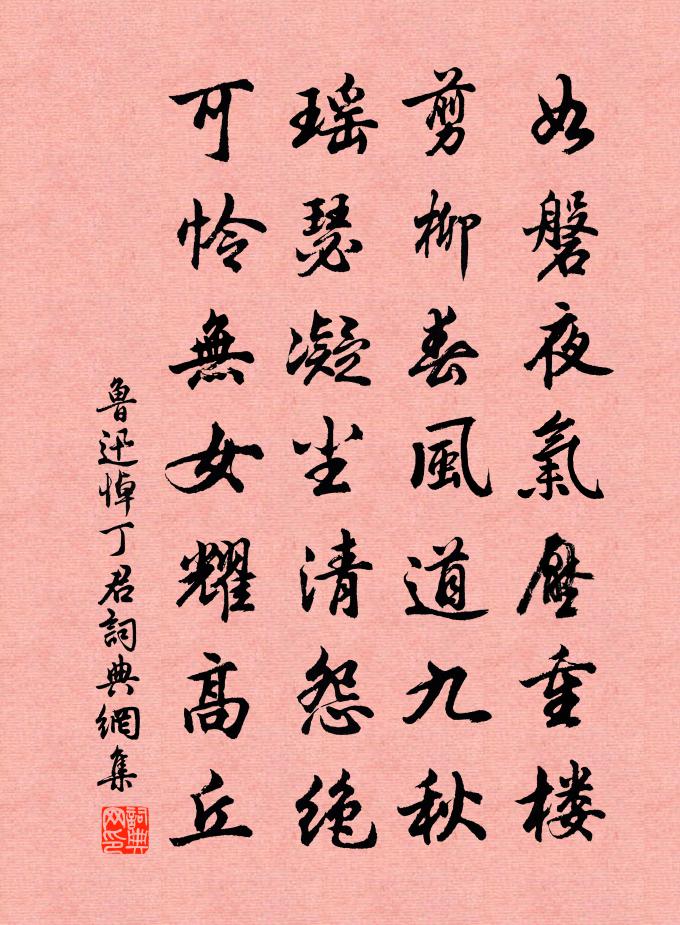 如磐夜氣壓重楼
剪柳春風道九秋
瑶瑟凝尘清怨绝
可怜無女耀高丘
魯迅悼丁君詞典網集
詞典网印